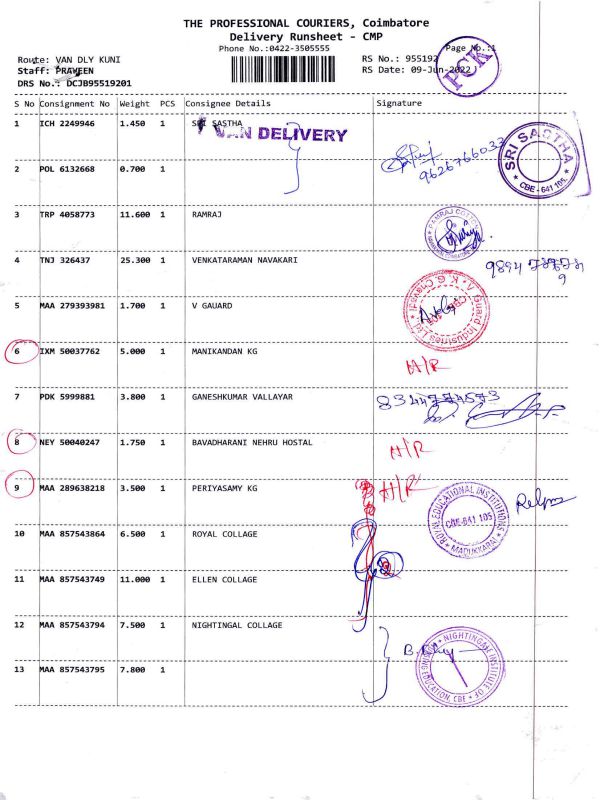 THE PROFESSIONAL COURIERS, Coimbatore
Delivery Runsheet - CMP
Phone No.:0422-3505555
Page No.:1
Route: VAN DLY KUNI
RS No.: 955192
Staff: PRAVEEN
RS Date: 09-Jun-2022
PCK
DRS No.: DCJB95519201
S No Consignment No Weight PCS Consignee Details Signature
1 ICH 2249946 1.450 1 SRI SASTHA
VAN DELIVERY
SRI SASTHA
CBE - 641 105.
2 POL 6132668 0.700 1
3 TRP 4058773 11.600 1 RAMRAJ
RAMRAJ COTTON
4 TNJ 326437 25.300 1 VENKATARAMAN NAVAKARI
5 MAA 279393981 1.700 1 V GAUARD
V-Guard Industries Ltd.
6 IXM 50037762 5.000 1 MANIKANDAN KG H/R
7 PDK 5999881 3.800 1 GANESHKUMAR VALLAYAR
8 NEY 50040247 1.750 1 BAVADHARANI NEHRU HOSTAL H/R
9 MAA 289638218 3.500 1 PERIYASAMY KG H/R
ROYAL EDUCATIONAL INSTITUTIONS
CBE-641 105
MADUKKARAI
10 MAA 857543864 6.500 1 ROYAL COLLAGE
11 MAA 857543749 11.000 1 ELLEN COLLAGE
12 MAA 857543794 7.500 1 NIGHTINGAL COLLAGE
NIGHTINGALE INSTITUTE OF NURSING EDUCATION, CBE
13 MAA 857543795 7.800 1